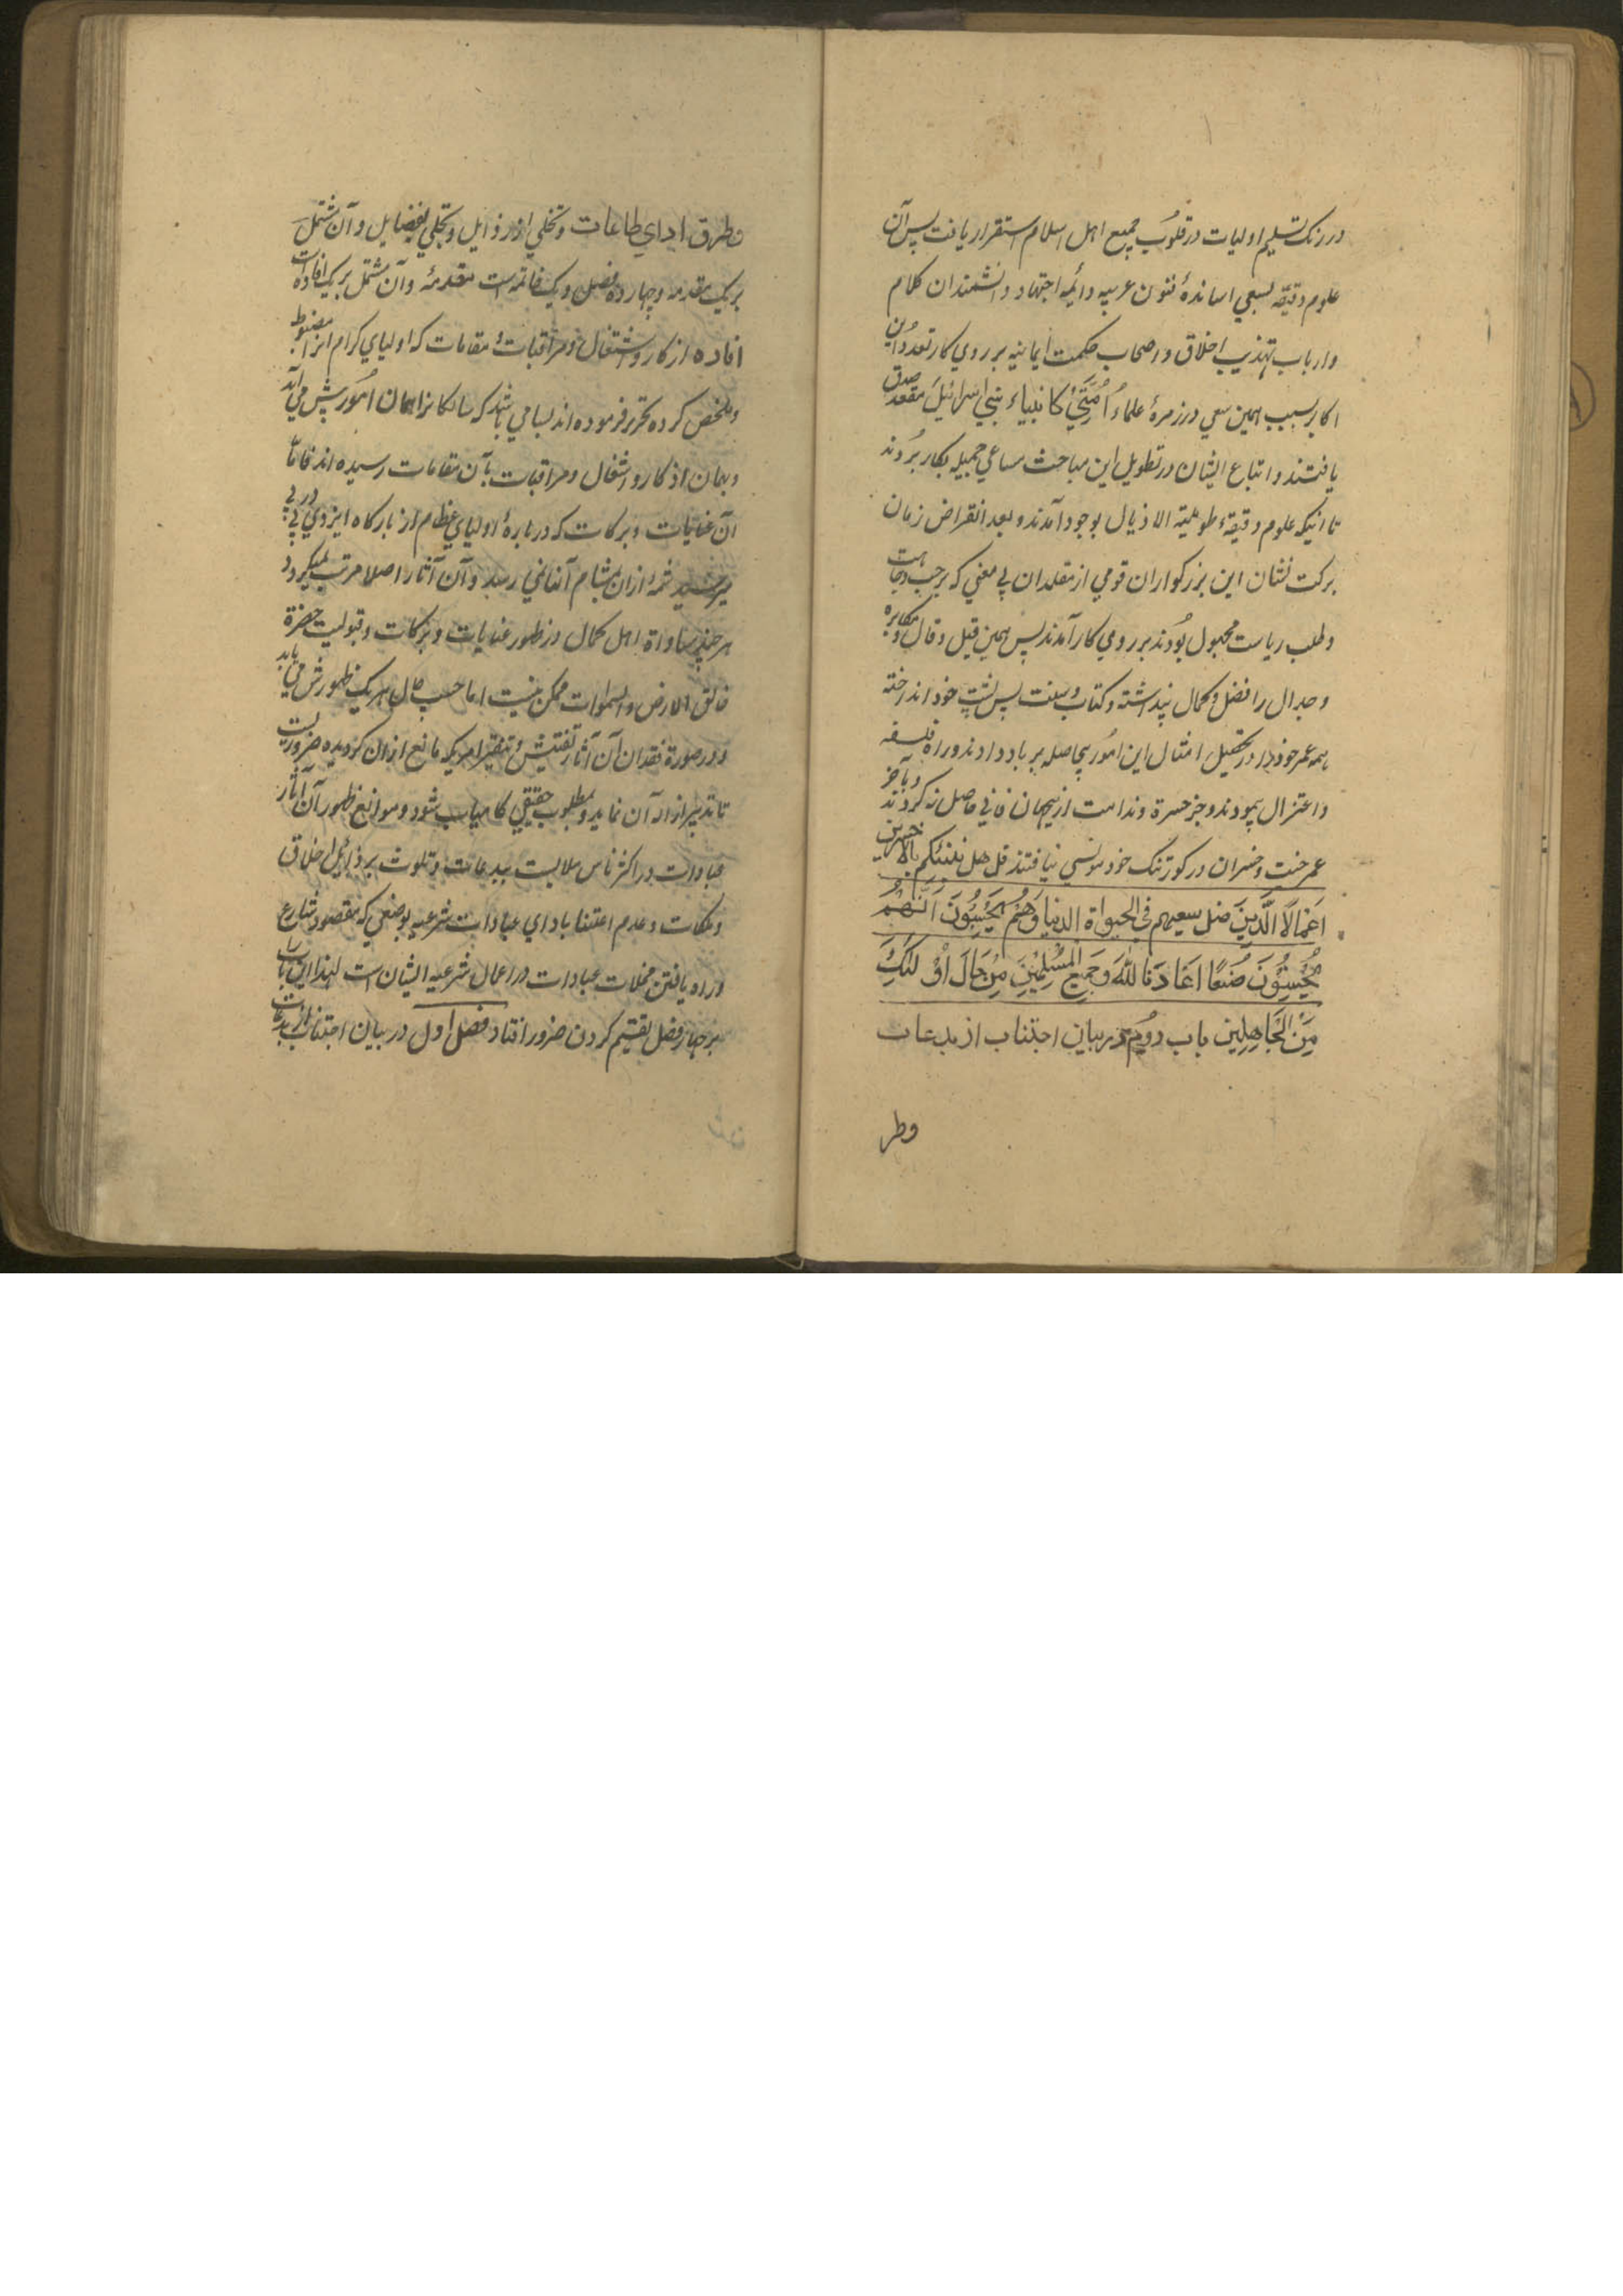 در رنگ تسلیم اولیات در قلوب جمیع اهل اسلام استقرار یافت پس آن
علوم دقیقه بسعی اساتذهٔ فنون عربیه و ائمه اجتهاد و دانشمندان کلام
و ارباب تهذیب اخلاق و اصحاب حکمت ایمانیه بر روی کار آمد و این
اکابر بسبب همین سعی در زمرهٔ علماءُ اُمَّتی کانبیاء بنی اسرائیل مقعد صدق
یافتند و اتباع ایشان در تطویل این مباحث مساعی جمیله بکار بُردند
تا اینکه علوم دقیقهٔ طویلة الاذیال بوجود آمدند و بعد انقراض زمان
برکت نشان این بزرگواران قومی از مقلدان بی مغنی که بر حب وجاهت
و طلب ریاست مجبول بُودند بر روی کار آمدند پس همین قیل و قال و مکابره
و جدال را فضل و کمال پنداشته و کتاب و سنت پس پشت خود انداخته
همه عمر خود را در تحصیل امثال این امُور بیحاصله برباد دادند و راه فلسفه
و اعتزال پیمودند و جز حسرة و ندامت ازین جهان فانی حاصل نه کردند و بآخر
عمر جز خسران در گور تنگ خود مونسی نیافتند قل هل ننبئکم بالاخسرین
اَعْمَالًا الَّذِینَ ضل سعیهم فی الحیواة الدنیا وَهُم یَحْسَبُونَ اَنَّهُمْ
یُحْسِنُونَ صُنْعًا اَعَاذَنَا اللهُ وَجَمِیعَ المُسْلِمِیْنَ مِنْ حَالِ اُوْلئِکَ
مِنَ الْجَاهِلِین باب دوُیم در بیان اجتناب از بدعات
وطر
وطرق ادای طاعات و تخلی از رذایل و تحلی بفضایل و آن مشتمل
بر یک مقدمه و چهارده فصل و یک خاتمه است مقدمهٔ و آن مشتمل بر یک افاده است
افاده اذکار و اشغال و مراقبات و مقامات که اولیای کرام انرا مضبوط
و ملخص کرده تحریر فرموده اند بسا می باشد که سالکانرا همان امُور پیش می آید
و بهمان اذکار و اشغال و مراقبات بآن مقامات رسیده اند فاما
آن عنایات و برکات که دربارهٔ اولیای عظام از بارگاه ایزدی پی در پی
میرسید شمهٔ ازان بمشام آنها نمی رسد و آن آثار اصلا مرتب نمیگردد
هر چند مساواة اهل کمال در ظهور عنایات و برکات و قبولیت حضرة
خالق الارض و السموات ممکن نیست اما حسب حال هر یک ظهورش می باید
و در صورة فقدان آن آثار تفتیش و تنقیر امریکه مانع ازان گردیده ضروریست
تا تدبیر ازاله آن نماید و بمطلوب حقیقی کامیاب شود و موانع ظهور آن آثار
عبادات در اکثر ناس ملابست ببدعات و تلوث برذائل اخلاق
و ملکات و عدم اعتنا بادای عبادات شرعیه بوضعی که مقصود شارع
و راه یافتن مخلات عبادات در اعمال شرعیه ایشان است لهذا این باب را
بر چهار فصل تقسیم کردن ضرور افتاد فصل اول در بیان اجتناب از بدعات